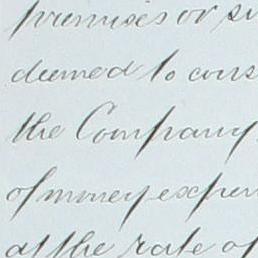 premises or su
deemed to cons
the Company
of money expen
at the rate of